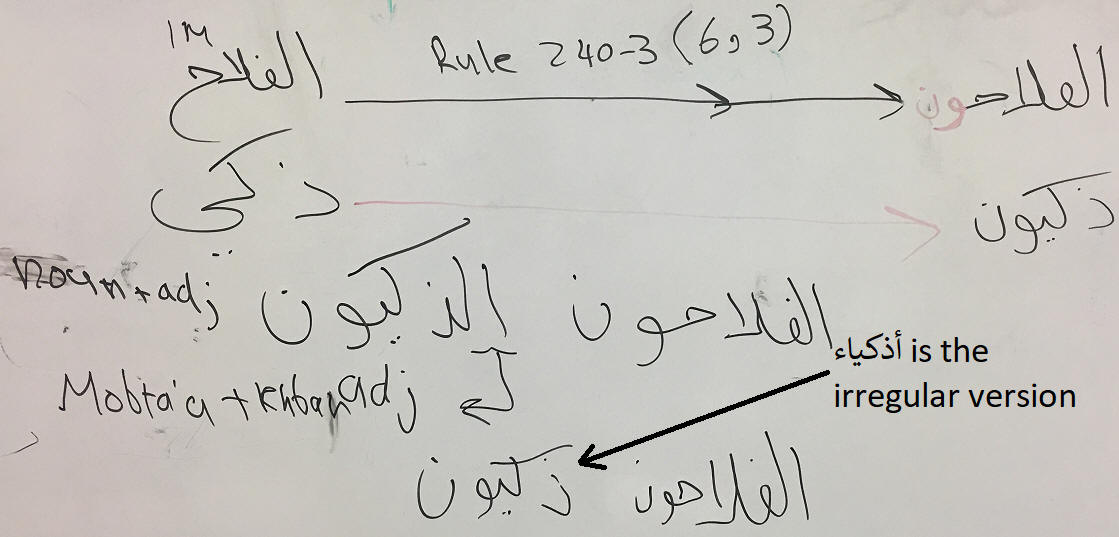 1M
الفلاح Rule 240-3 (6,3) الفلاحون
ذكي ذكيون
noun+adj الفلاحون الذكيون
أذكياء is the
irregular version
Mobta'a + khbar adj
الفلاحون ذكيون